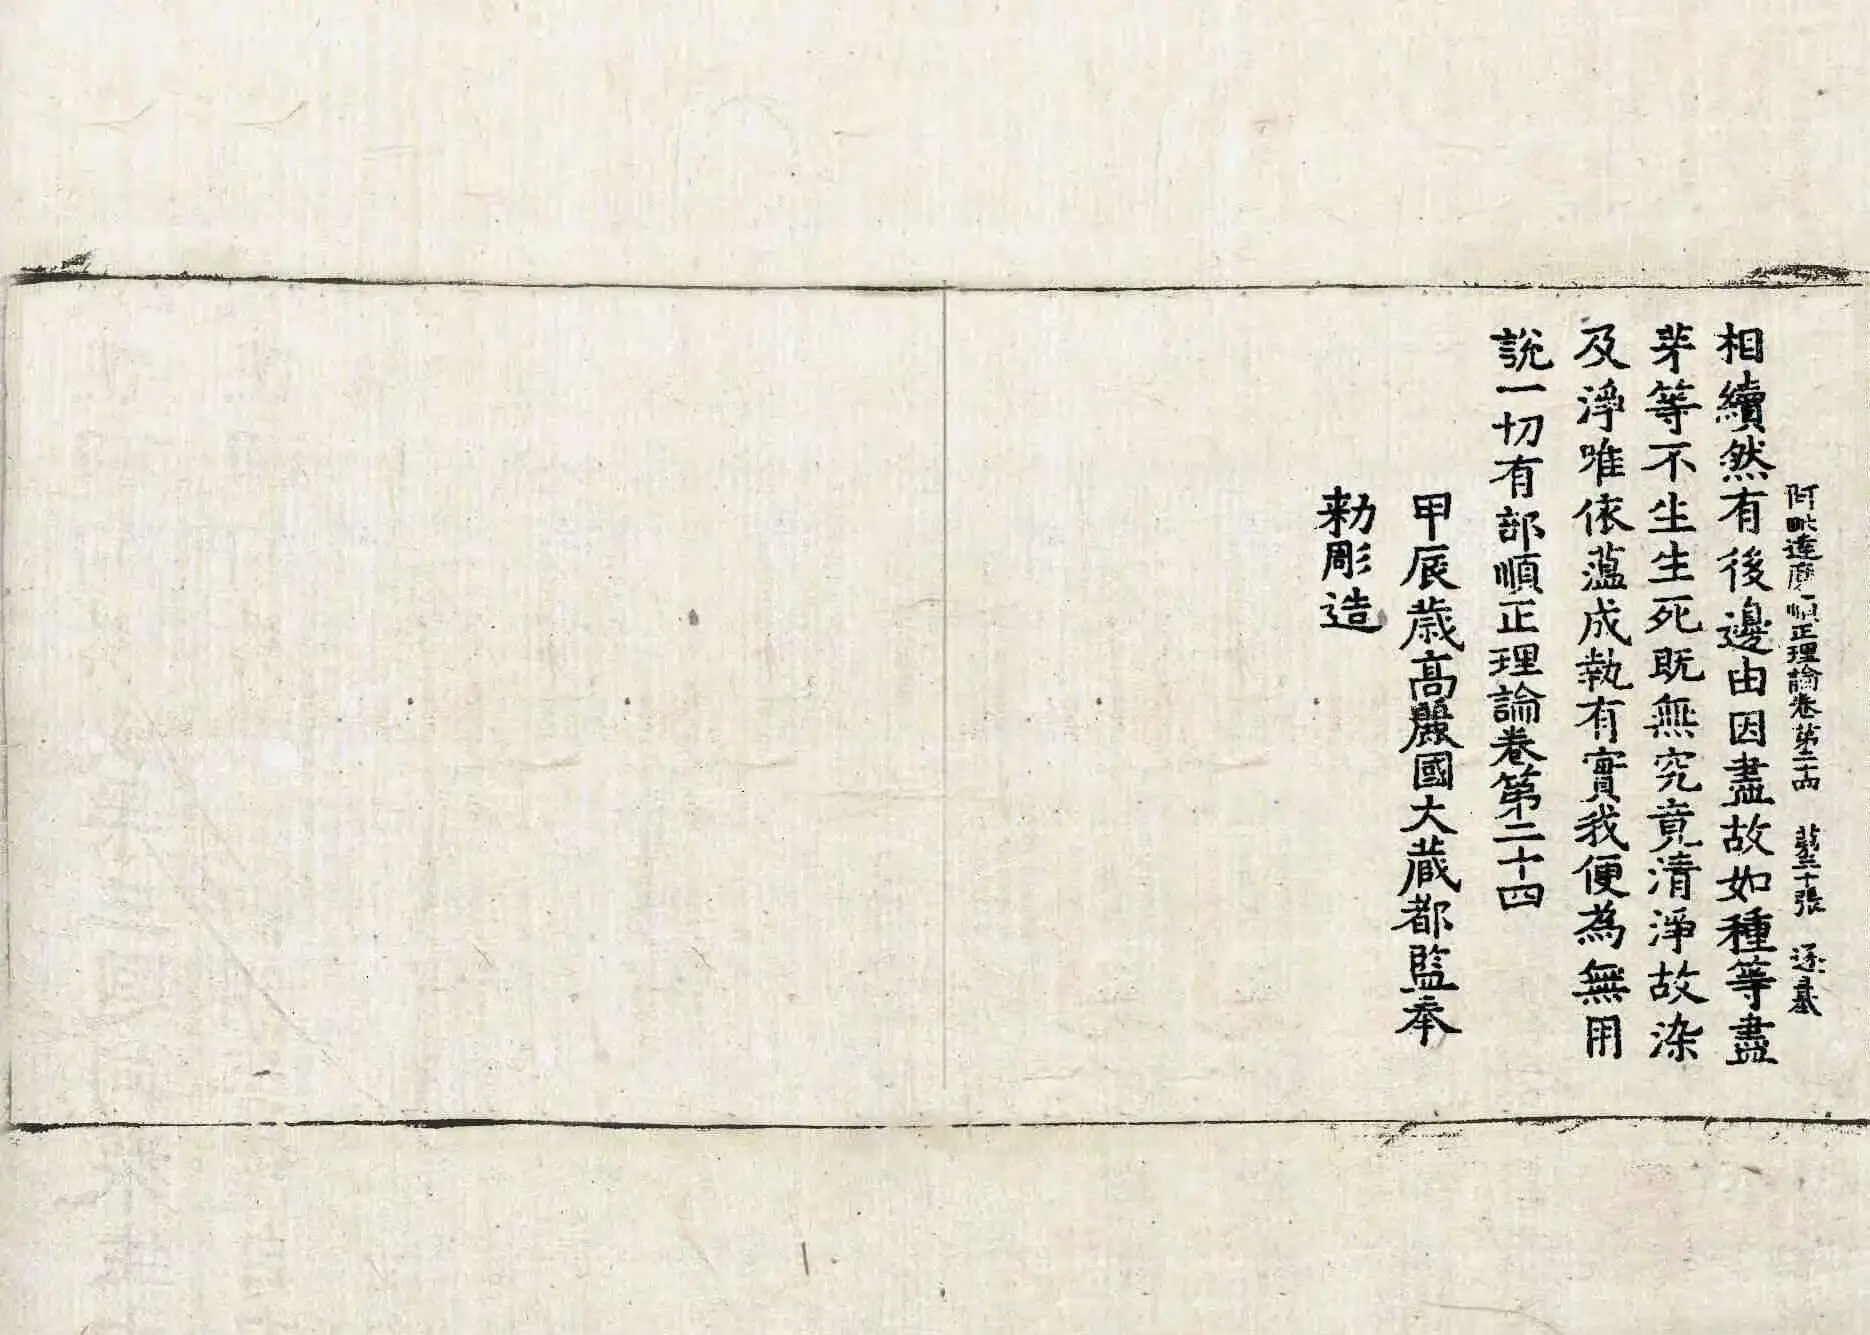 阿毗達磨順正理論卷第二十四　第二十張　逐
相續然有後邊由因盡故如種等盡
芽等不生生死既無究竟清淨故染
及淨唯依蘊成執有實我便為無用
說一切有部順正理論卷第二十四
甲辰歲高麗國大藏都監奉
勑彫造